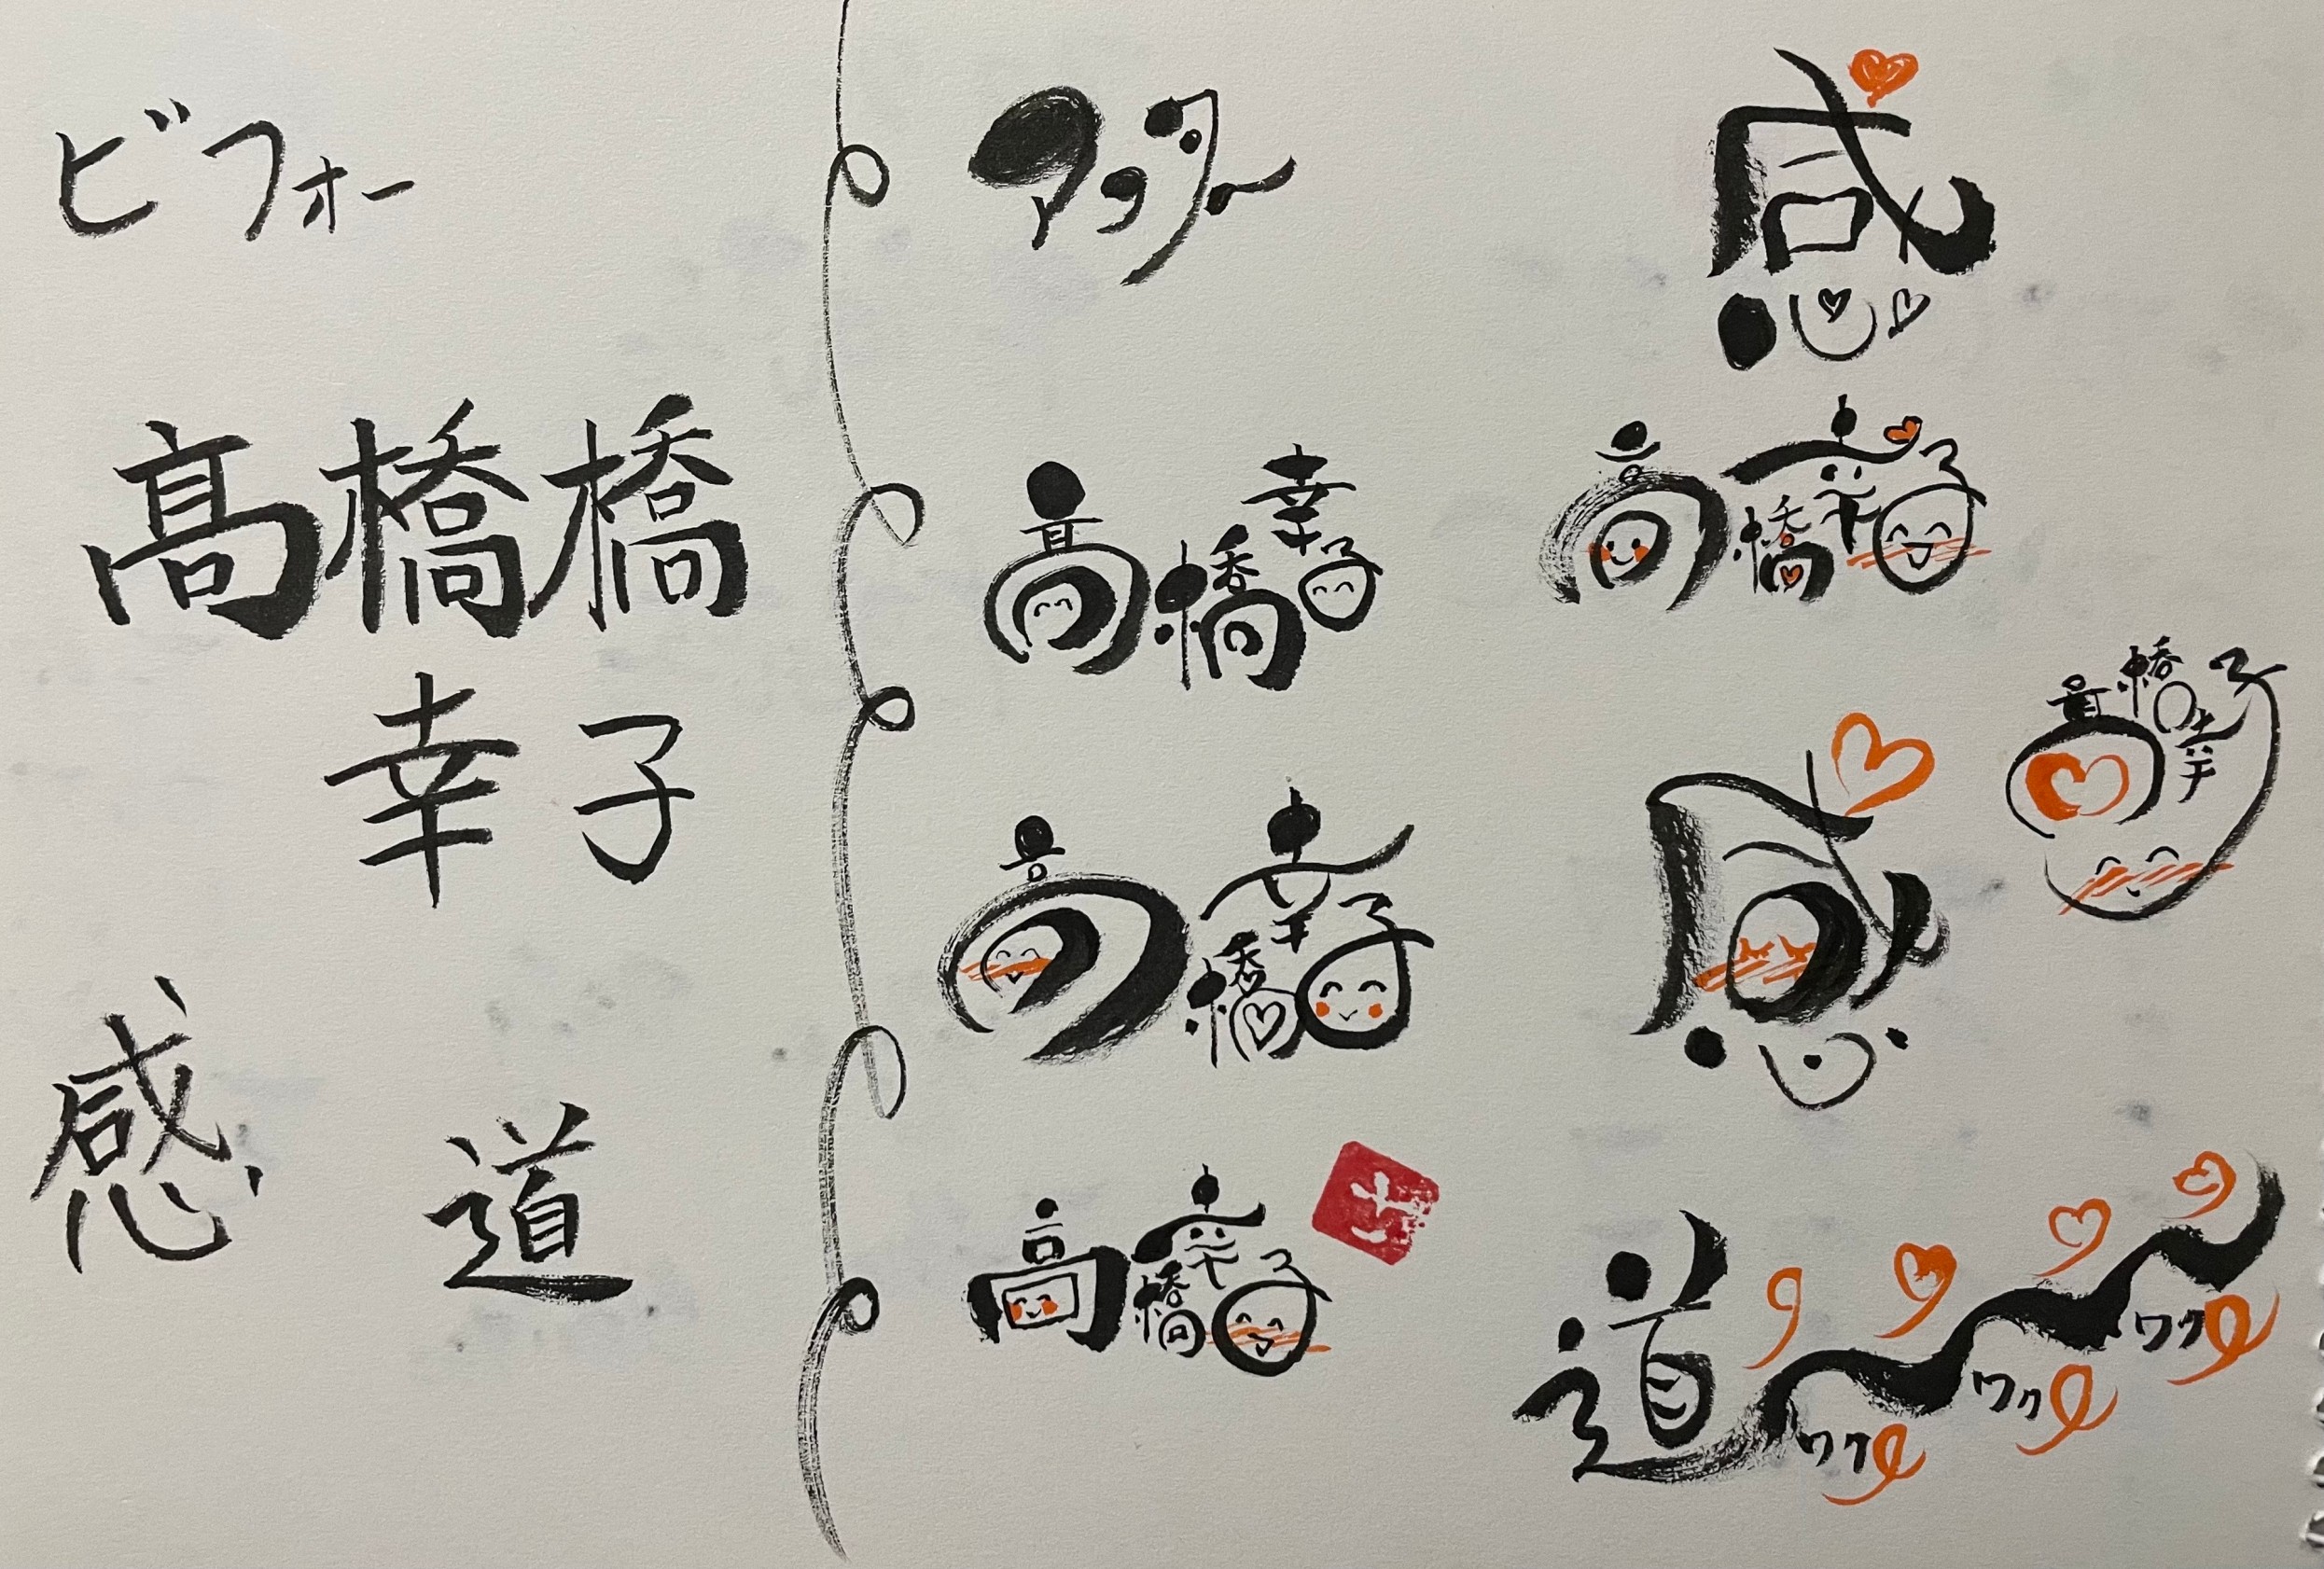 ビフォー
髙橋橋
幸子
感 道
アフター
髙橋幸子
髙橋幸子
髙橋幸子
感
髙橋幸子
髙橋幸子
感
道
ワク
ワク
ワク